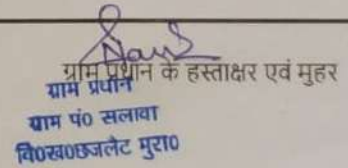 ग्राम प्रधान के हस्ताक्षर एवं मुहर
ग्राम प्रधान
ग्राम पं० सलावा
वि०ख०छजलैट मुरा०